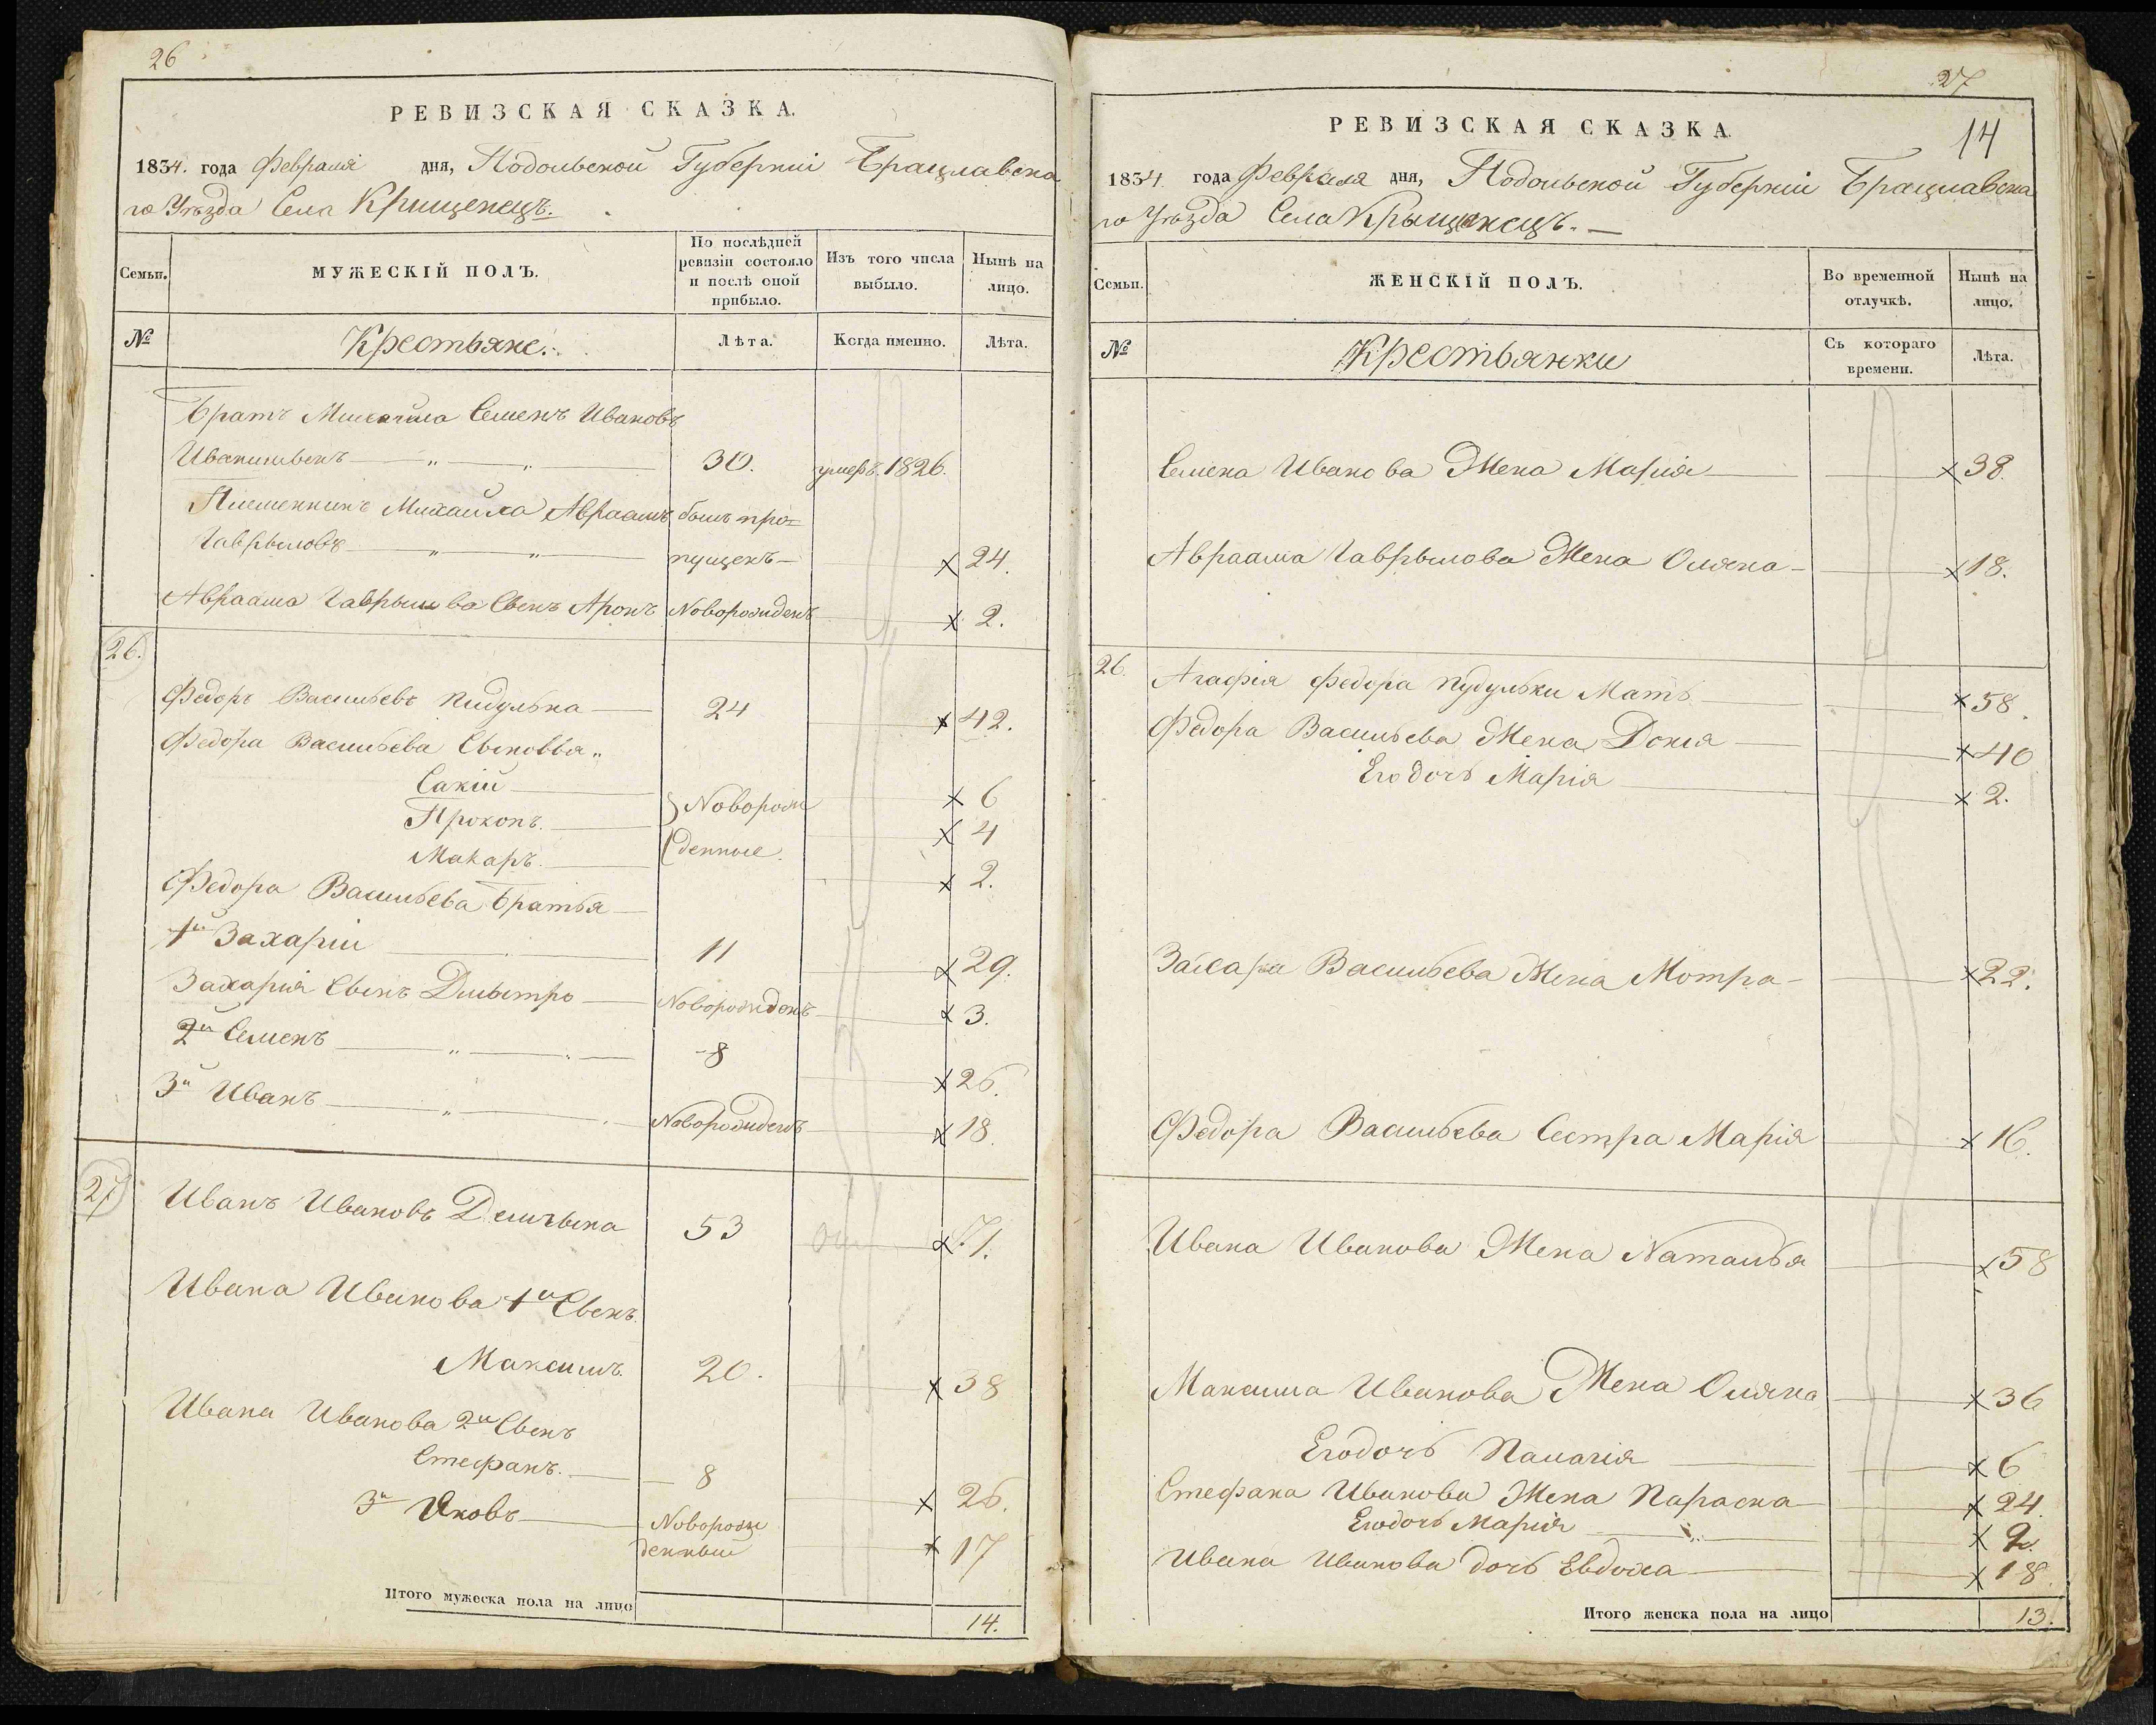 26
РЕВИЗСКАЯ СКАЗКА.
1834. года Февраля дня, Подольской Губерніи Брацлавска
го Уѣзда Села Крищенецъ.
Семьи. МУЖЕСКІЙ ПОЛЪ. По послѣдней ревизіи состояло и послѣ оной прибыло. Изъ того числа выбыло. Нынѣ на лицо.
№ Крестьяне. Лѣта. Когда именно. Лѣта.
Братъ Михайла Семенъ Ивановъ
30. умеръ 1826.
Племенникъ Михайла Авраамъ былъ про=
Гаврыловъ пущенъ 24.
Авраама Гаврылова Сынъ Аронъ Новорожденъ 2.
26.
Федоръ Васильевъ Пидулька 24 42.
Федора Васильева Сыновья
Сакій 6
Прокопъ. Новорож 4
Макаръ. денные. 2.
Федора Васильева Братья
1й Захарій 11 29.
Захарія Сынъ Дмытро Новорожденъ 3.
2й Семенъ 8 26.
3й Иванъ Новорожденъ 18.
27
Иванъ Ивановъ Демчына 53 71.
Ивана Иванова 1й Сынъ
Максимъ. 20. 38
Ивана Иванова 2й Сынъ
Стефанъ. 8 26.
3й Яковъ Новорож
денный 17
Итого мужеска пола на лицо 14.
27
14
РЕВИЗСКАЯ СКАЗКА.
1834 года Февраля дня, Подольской Губерніи Брацлавска
го Уѣзда Села Крыщенецъ.
Семьи. ЖЕНСКІЙ ПОЛЪ. Во временной отлучкѣ. Нынѣ на лицо.
№ Крестьянки Съ котораго времени. Лѣта.
Семена Иванова Жена Марія 38.
Авраама Гаврылова Жена Оляна 18.
26. Агафія Федора Пудульки Мать 58.
Федора Васильева Жена Докія 40
Его дочь Марія 2.
Захара Васильева Жена Мотра 22.
Федора Васильева Сестра Марія 16.
Ивана Иванова Жена Наталья 58
Максима Иванова Жена Оляна 36
Его дочь Палагія 6
Стефана Иванова Жена Параска 24.
Его дочь Марія 2.
Ивана Иванова дочь Евдоха 18.
Итого женска пола на лицо 13.